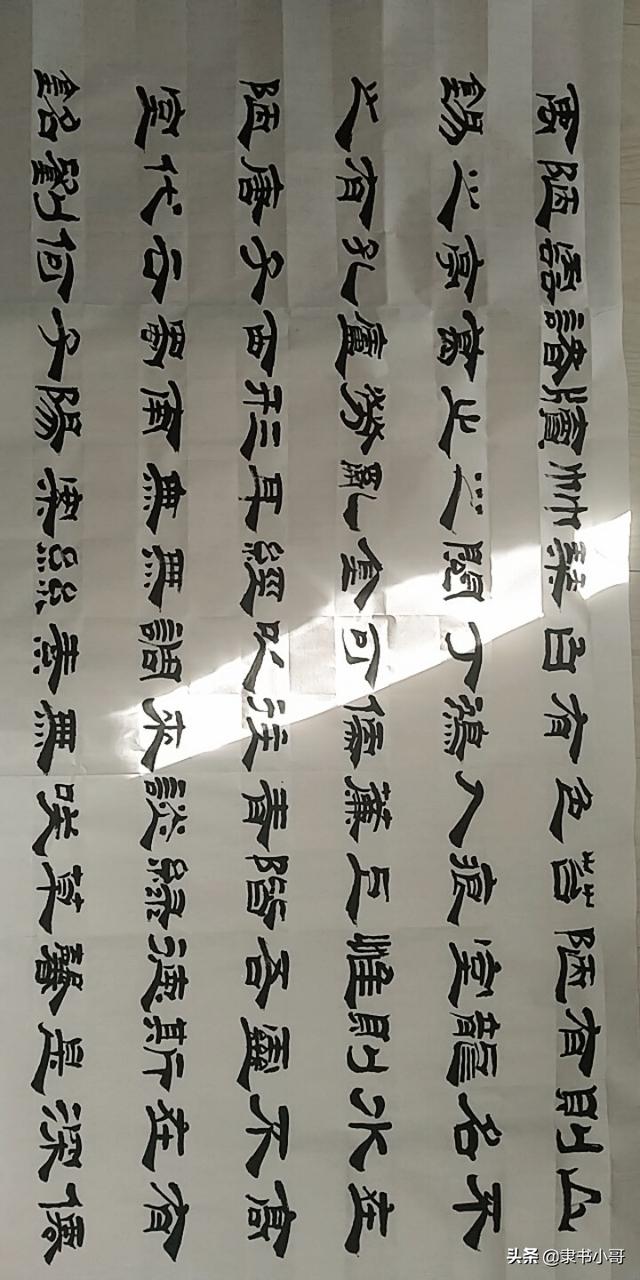 山不在高有僊
則名水不在深
有龍則靈斯是
陋室惟吾德馨
苔痕上階綠草
色入簾青談笑
有鴻儒往來無
白丁可以調素
琴閱金經無絲
竹之亂耳無案
牘之勞形南陽
諸葛廬西蜀子
雲亭孔子云何
陋之有唐代劉
禹錫之陋室銘
头条 @隶书小哥